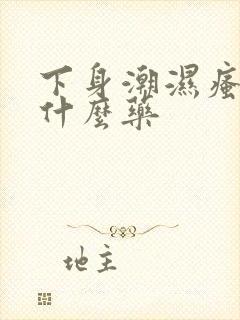 下身潮濕瘙
什麼藥
地主